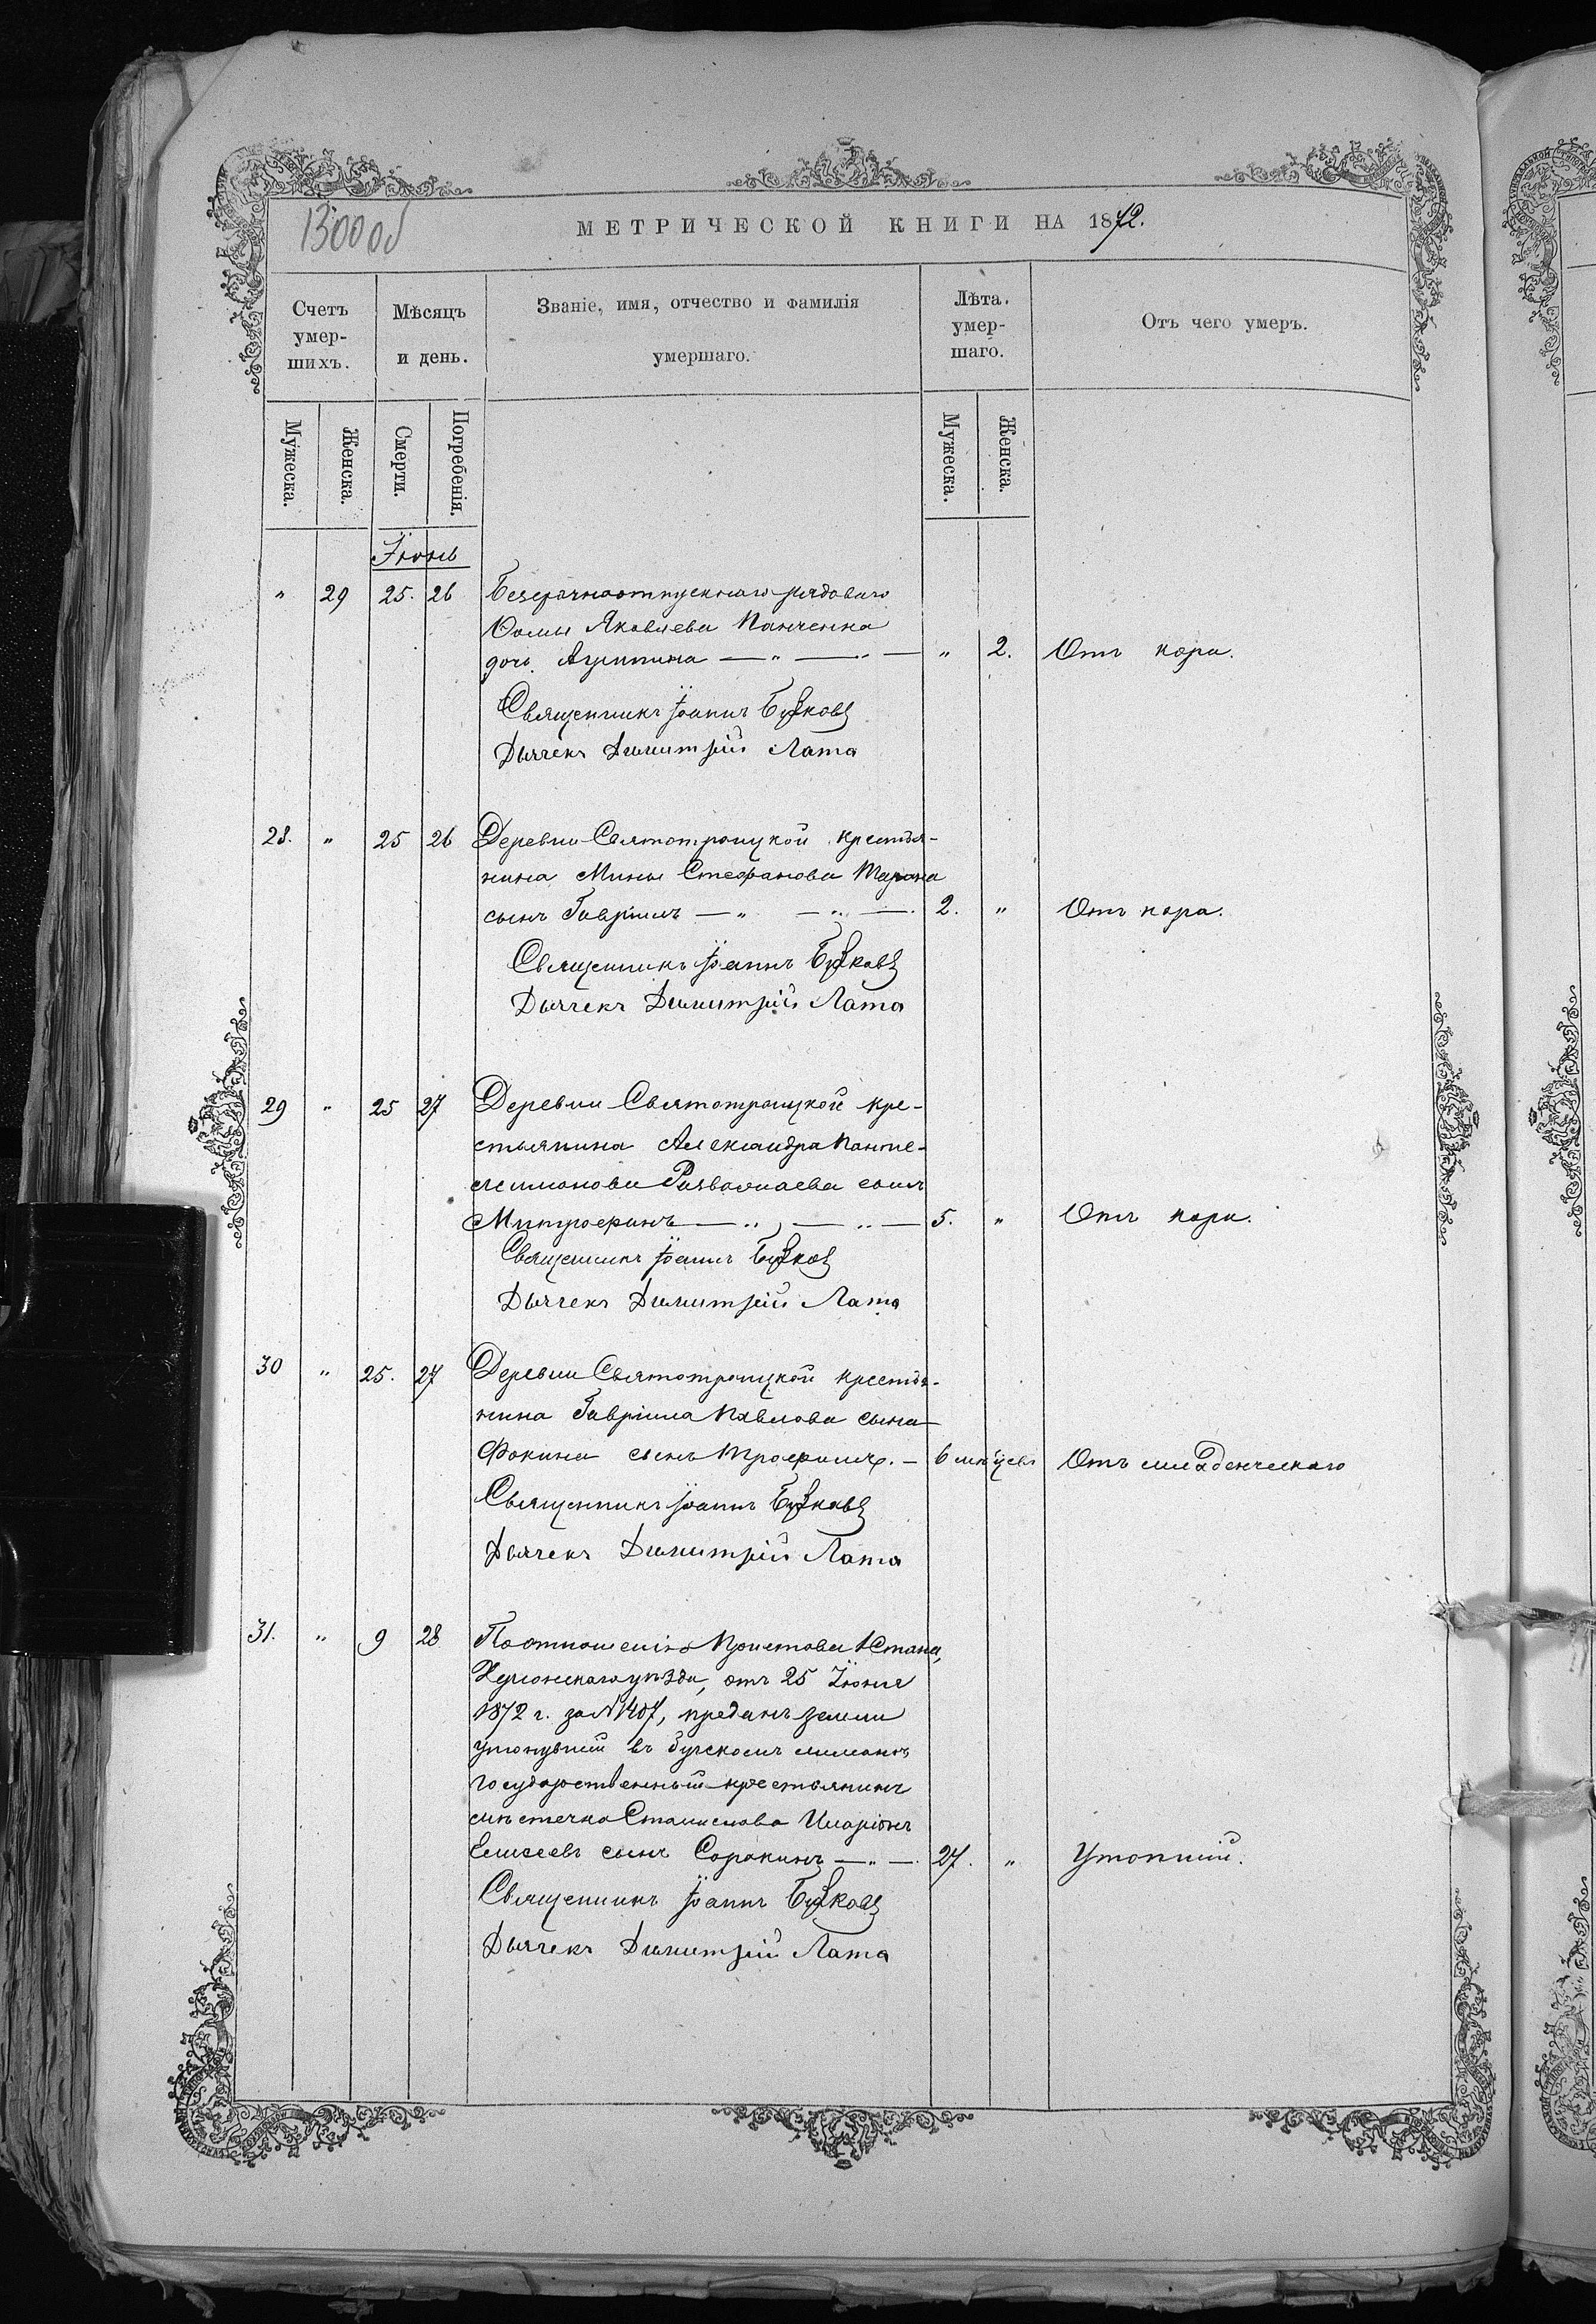 1300 об
МЕТРИЧЕСКОЙ КНИГИ НА 1872.
Счетъ умер-шихъ.
Мѣсяцъ и день.
Званіе, имя, отчество и фамилія умершаго.
Лѣта. умер-шаго.
Отъ чего умеръ.
Мужеска. Женска. Смерти. Погребенія. Мужеска. Женска.
Іюнь
" 29 25. 26 Безсрочноотпускнаго рядоваго
Ѳомы Яковлева Панченка
дочь Агрипина — " — " — " 2. Отъ кори.
Священникъ Іоаннъ
Дьячекъ Димитрій Лата
28. " 25 26 Деревни Святотроицкой крестья-
нина Мины Стефанова Тарана
сынъ Гавріилъ — " — " —. 2. " Отъ кора.
Священникъ Іоаннъ
Дьячекъ Димитрій Лата
29 " 25 27 Деревни Святотроицкой кре-
стьянина Александра Панте-
леимонова сынъ
Митрофанъ — " — " — 5. " Отъ кори.
Священникъ Іоаннъ
Дьячекъ Димитрій Лата
30 " 25. 27 Деревни Святотроицкой крестья-
нина Гавріила Павлова сына
Фокина сынъ Трофимъ. — 6 мѣсяцевъ Отъ младенческаго
Священникъ Іоаннъ
Дьячекъ Димитрій Лата
31. " 9 28 По отношенію Пристава 1 Стана,
Херсонскаго уѣзда, отъ 25 Іюня
1872 г. за N 1407, преданъ земли
утонувшій въ бугскомъ лиманѣ
государственный крестьянинъ
мѣстечка Станислава Иларіонъ
Елисеевъ сынъ Сорокинъ — " —. 27. " Утопшій.
Священникъ Іоаннъ
Дьячекъ Димитрій Лата